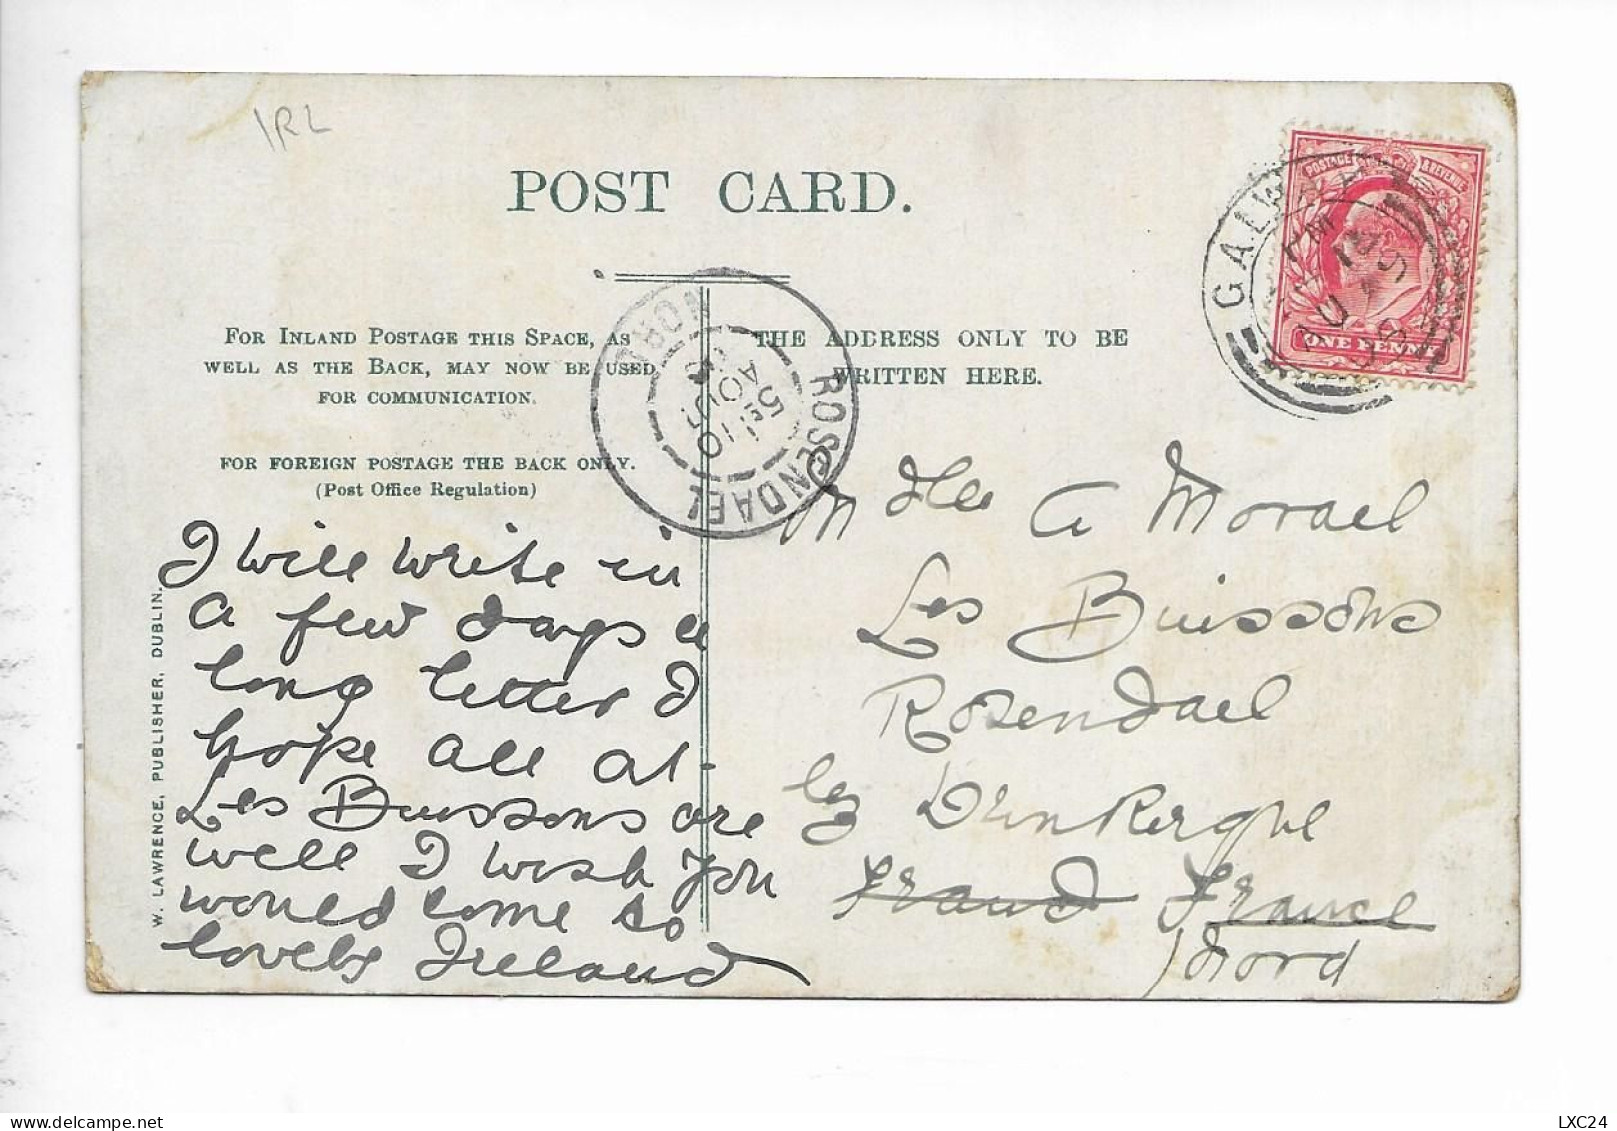 IRL
POST CARD.
POSTAGE & REVENUE
ONE PENNY
GALWAY
ROSENDAEL
NORD
FOR INLAND POSTAGE THIS SPACE, AS
WELL AS THE BACK, MAY NOW BE USED
FOR COMMUNICATION.
FOR FOREIGN POSTAGE THE BACK ONLY.
(Post Office Regulation)
THE ADDRESS ONLY TO BE
WRITTEN HERE.
I will write in
a few days a
long letter I
hope all at
Les Buissons are
well I wish you
would come so
lovely Ireland
Mdlle A Morael
Les Buissons
Rosendael
lez Dunkerque
France
Nord
W. LAWRENCE, PUBLISHER, DUBLIN.
LXC24